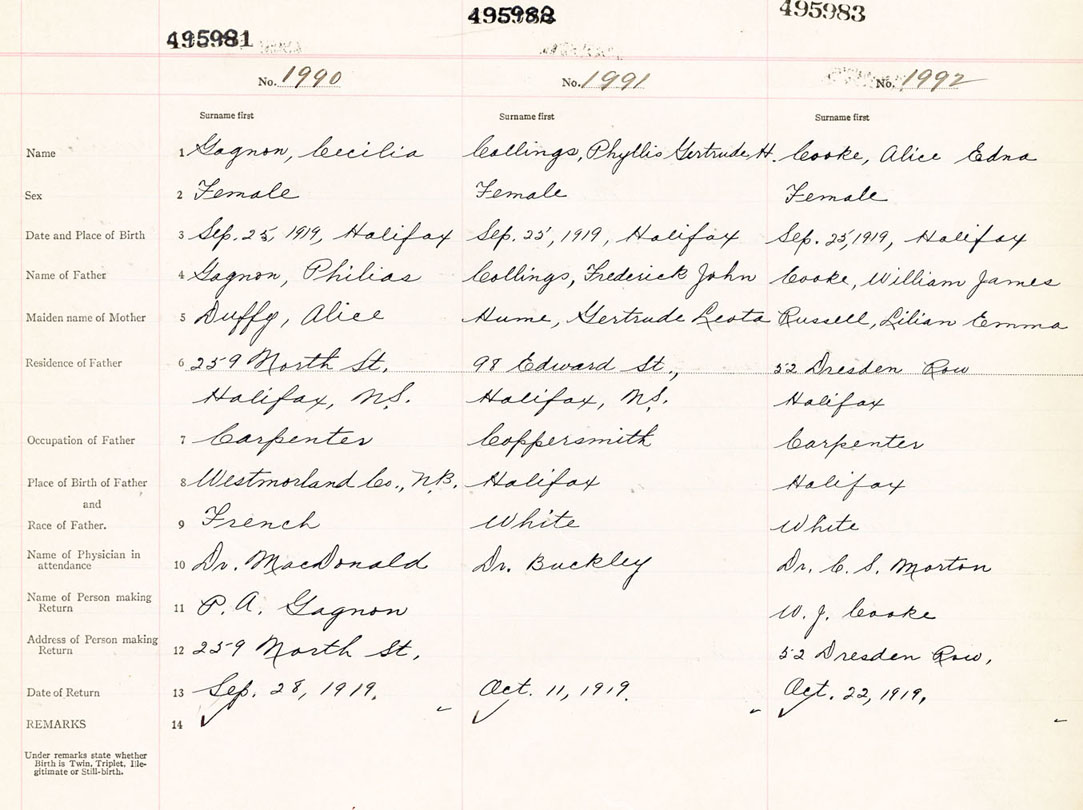 495981 495982 495983
No. 1990 No. 1991 No. 1992
Surname first Surname first Surname first
Name 1 Gagnon, Cecilia Collings, Phyllis Gertrude H. Cooke, Alice Edna
Sex 2 Female Female Female
Date and Place of Birth 3 Sep. 25, 1919, Halifax Sep. 25, 1919, Halifax Sep. 25, 1919, Halifax
Name of Father 4 Gagnon, Philias Collings, Frederick John Cooke, William James
Maiden name of Mother 5 Duffy, Alice Hume, Gertrude Leota Russell, Lilian Emma
Residence of Father 6 259 North St. 98 Edward St., 52 Dresden Row
Halifax, N.S. Halifax, N.S. Halifax
Occupation of Father 7 Carpenter Coppersmith Carpenter
Place of Birth of Father 8 Westmorland Co., N.B. Halifax Halifax
and
Race of Father. 9 French White White
Name of Physician in
attendance 10 Dr. MacDonald Dr. Buckley Dr. C. S. Morton
Name of Person making
Return 11 P. A. Gagnon W. J. Cooke
Address of Person making
Return 12 259 North St. 52 Dresden Row.
Date of Return 13 Sep. 28, 1919. Oct. 11, 1919. Oct. 22, 1919.
REMARKS 14
Under remarks state whether
Birth is Twin, Triplet, Ille-
gitimate or Still-birth.